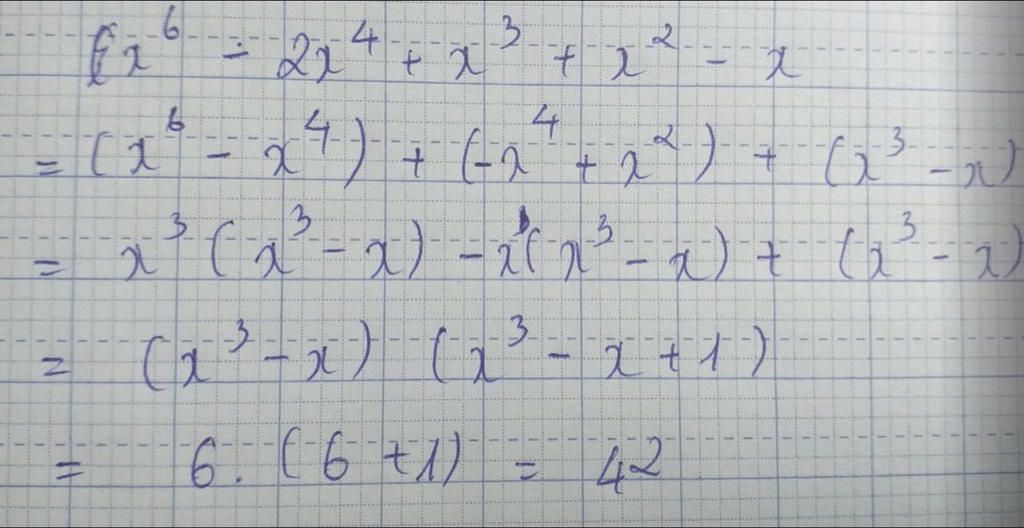 x⁶ - 2x⁴ + x³ + x² - x
= (x⁶ - x⁴) + (-x⁴ + x²) + (x³ - x)
= x³ (x³ - x) - x (x³ - x) + (x³ - x)
= (x³ - x) (x³ - x + 1)
= 6. (6 + 1) = 42